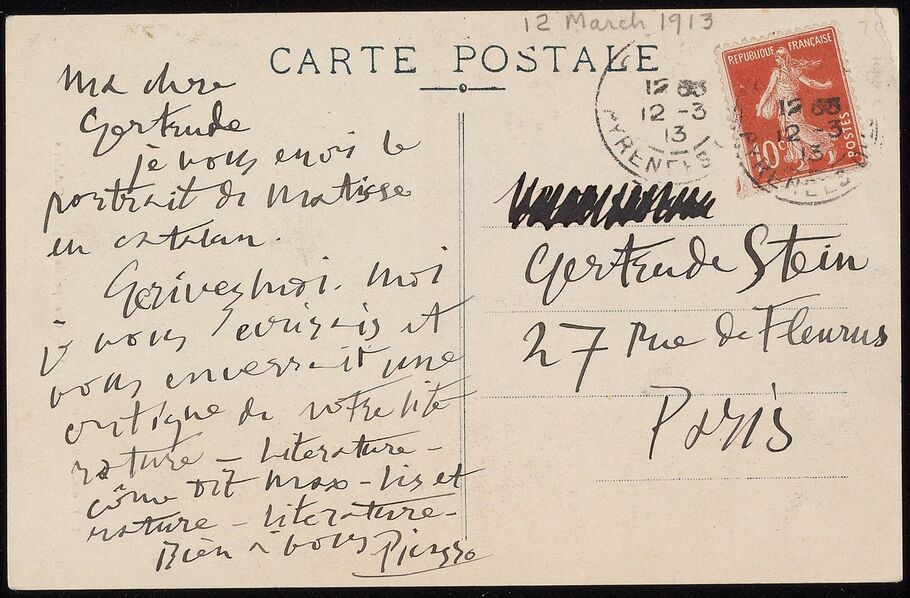 12 March 1913
CARTE POSTALE
REPUBLIQUE FRANÇAISE
10c
POSTES
12 -3
13
PYRENEES
12 -3
13
Ma chere
Gertrude
je vous envoi le
portrait de Matisse
en catalan.
Ecrivez moi. Moi
je vous ecrirais et
vous enverrait une
critique de votre lite
rature – Literature –
côme dit Max – lis et
rature – literature –
Bien a vous Picasso
Gertrude Stein
27 Rue de Fleurus
Paris